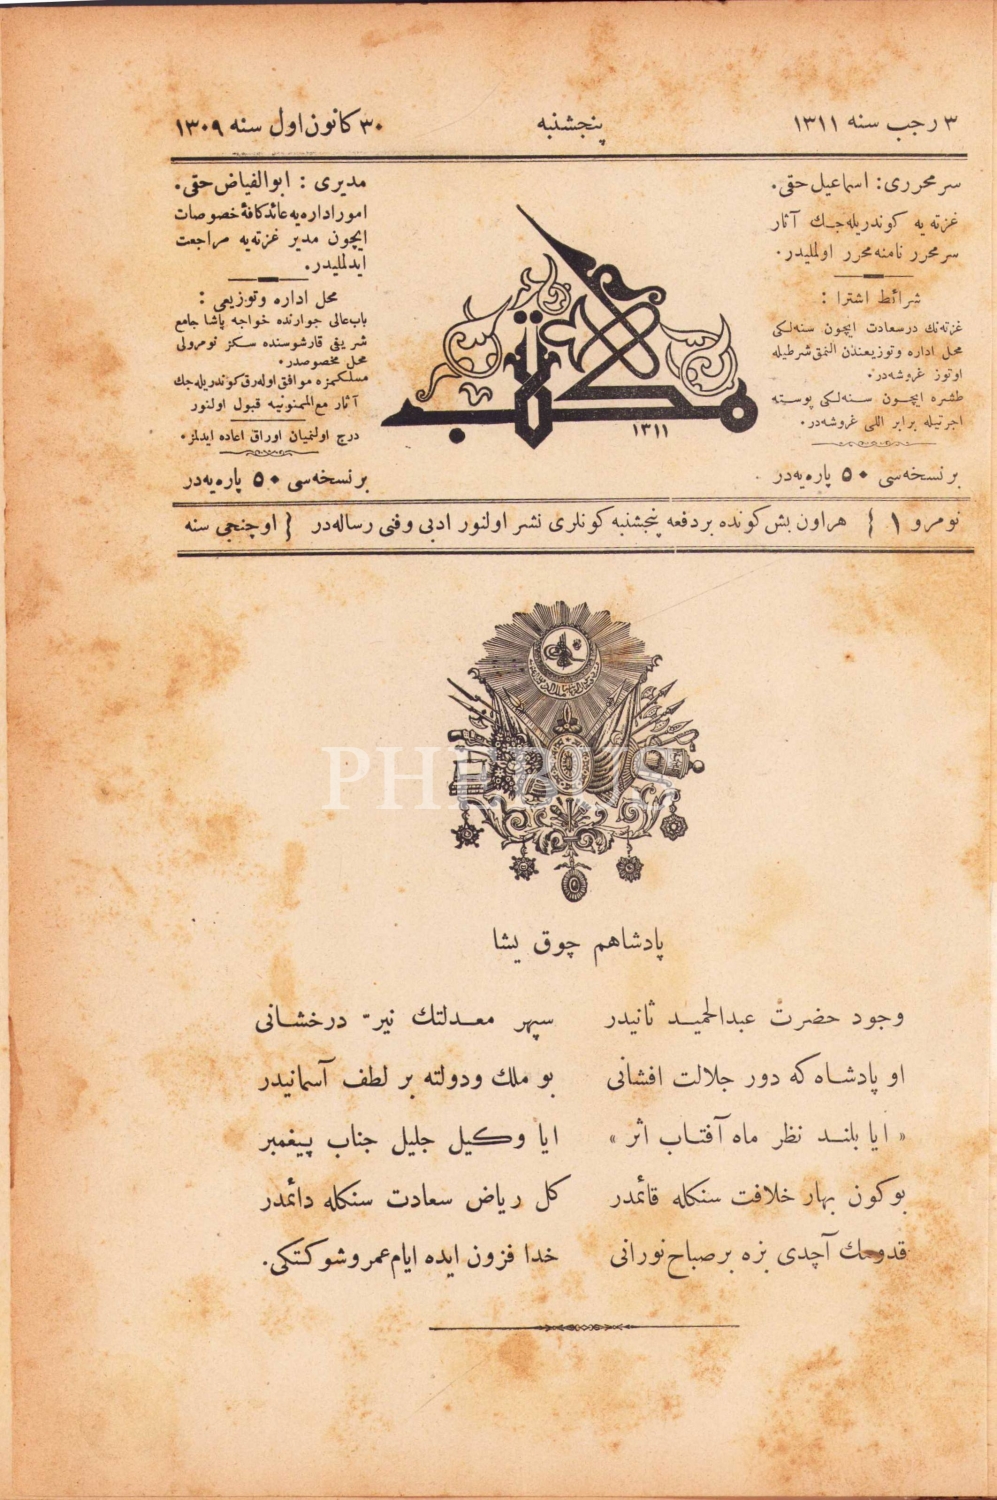 ٣ رجب سنه ١٣١١
پنجشنبه
٣٠ كانون اول سنه ١٣٠٩
سر محررى : اسماعيل حقى .
غزته يه كوندريله جك آثار
سر محرر نامنه محرر اولمليدر .
شرائط اشترا :
غزته نك درسعادت ايچون سنه لكى
محل اداره و توزيعندن النمق شرطيله
اوتوز غروشه در .
طشره ايچون سنه لكى پوسته
اجرتيله برابر اللى غروشه در .
بر نسخه سى ٥٠ پاره يه در
مكتب
١٣١١
مديرى : ابوالفياض حقى .
امور اداره يه عائد كافهٔ خصوصات
ايچون مدير غزته يه مراجعت
ايدلمليدر .
محل اداره و توزيعى :
باب عالى جوارنده خواجه پاشا جامع
شريفى قارشوسنده سكز نومرولى
محل مخصوصدر .
مسلكمزه موافق اوله رق كوندريله جك
آثار مع الممنونيه قبول اولنور
درج اولنميان اوراق اعاده ايدلمز .
بر نسخه سى ٥٠ پاره يه در
نومرو ١ { هر اون بش كونده بر دفعه پنجشنبه كونلرى نشر اولنور ادبى و فنى رساله در { اوچنجى سنه
PHEBUS
پادشاهم چوق يشا
وجود حضرت عبدالحميد ثانيدر سپهر معدلتك نير درخشانى
او پادشاه كه دور جلالت افشانى بو ملك و دولته بر لطف آسمانيدر
« ايا بلند نظر ماه آفتاب اثر » ايا وكيل جليل جناب پيغمبر
بوكون بهار خلافت سنكله قائمدر كل رياض سعادت سنكله دائمدر
قدومك آچدى بزه بر صباح نورانى خدا فزون ايده ايام عمر و شوكتكى .